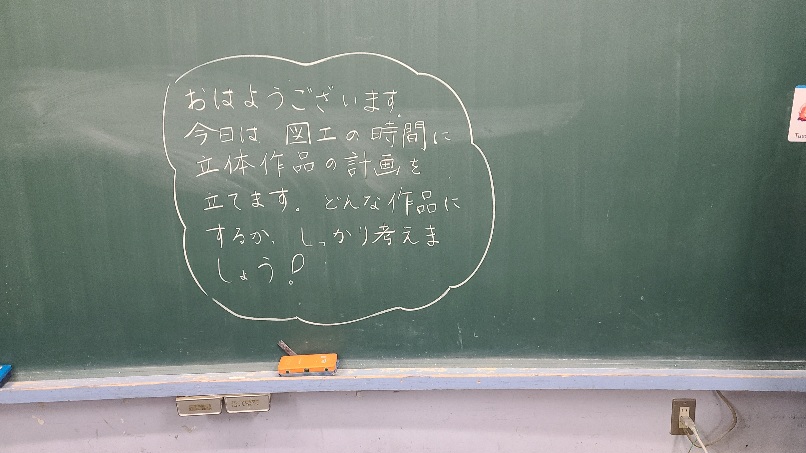 おはようございます。
今日は 図工の時間に
立体作品の計画を
立てます。どんな作品に
するか、しっかり考えま
しょう!